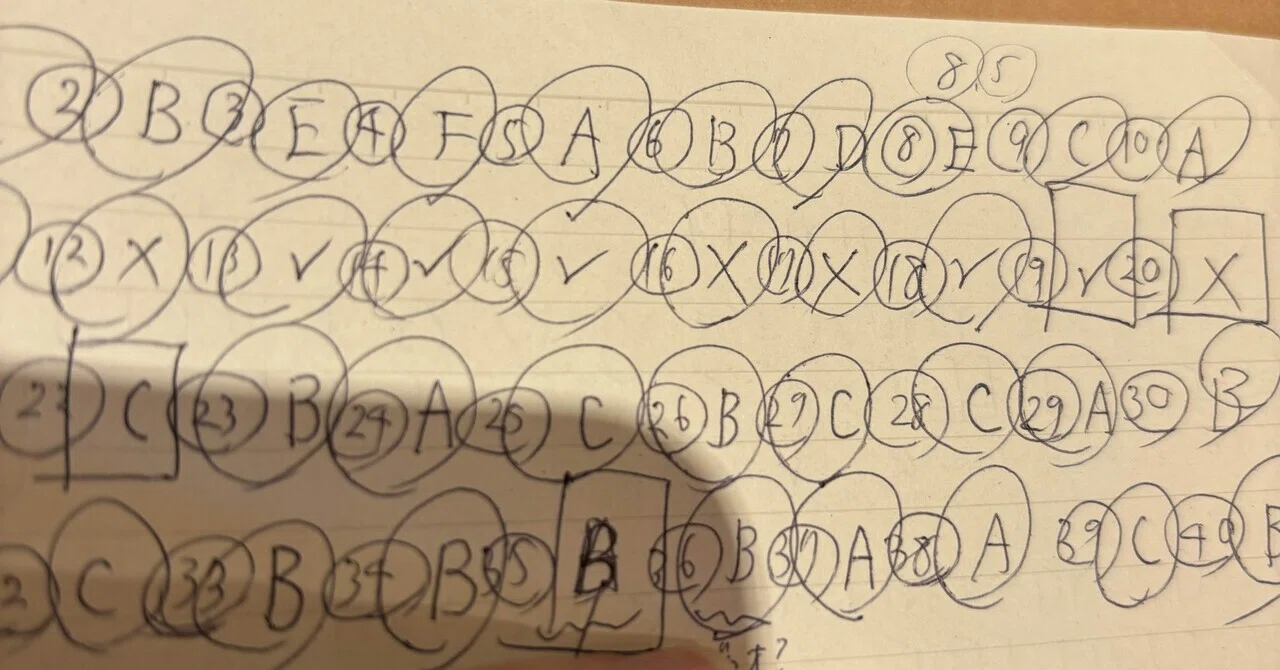 8 5
② B ③ E ④ F ⑤ A ⑥ B ⑦ D ⑧ E ⑨ C ⑩ A
⑫ X ⑬ ✓ ⑭ ✓ ⑮ ✓ ⑯ X ⑰ X ⑱ ✓ ⑲ ✓ ⑳ X
㉒ C ㉓ B ㉔ A ㉕ C ㉖ B ㉗ C ㉘ C ㉙ A ㉚ B
2 C ㉝ B ㉞ B ㉟ B ㊱ B ㊲ A ㊳ A ㊴ C ㊵